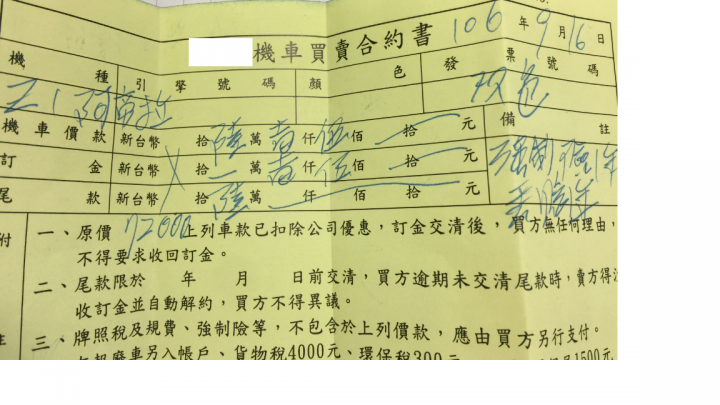 機車買賣合約書 106年9月16日
機種 引擎號碼 顏色 發票號碼
機車價款 新台幣 拾陸萬壹仟伍佰拾元 備註
訂金 新台幣 拾萬壹仟伍佰拾元
尾款 新台幣 拾陸萬仟佰拾元
一、原價72000上列車款已扣除公司優惠，訂金交清後，買方無任何理由，
不得要求收回訂金。
二、尾款限於 年 月 日前交清，買方逾期未交清尾款時，賣方得沒
收訂金並自動解約，買方不得異議。
三、牌照稅及規費、強制險等，不包含於上列價款，應由買方另行支付。
廢車另入帳戶、貨物稅4000元、環保稅300元
1500元
附
註